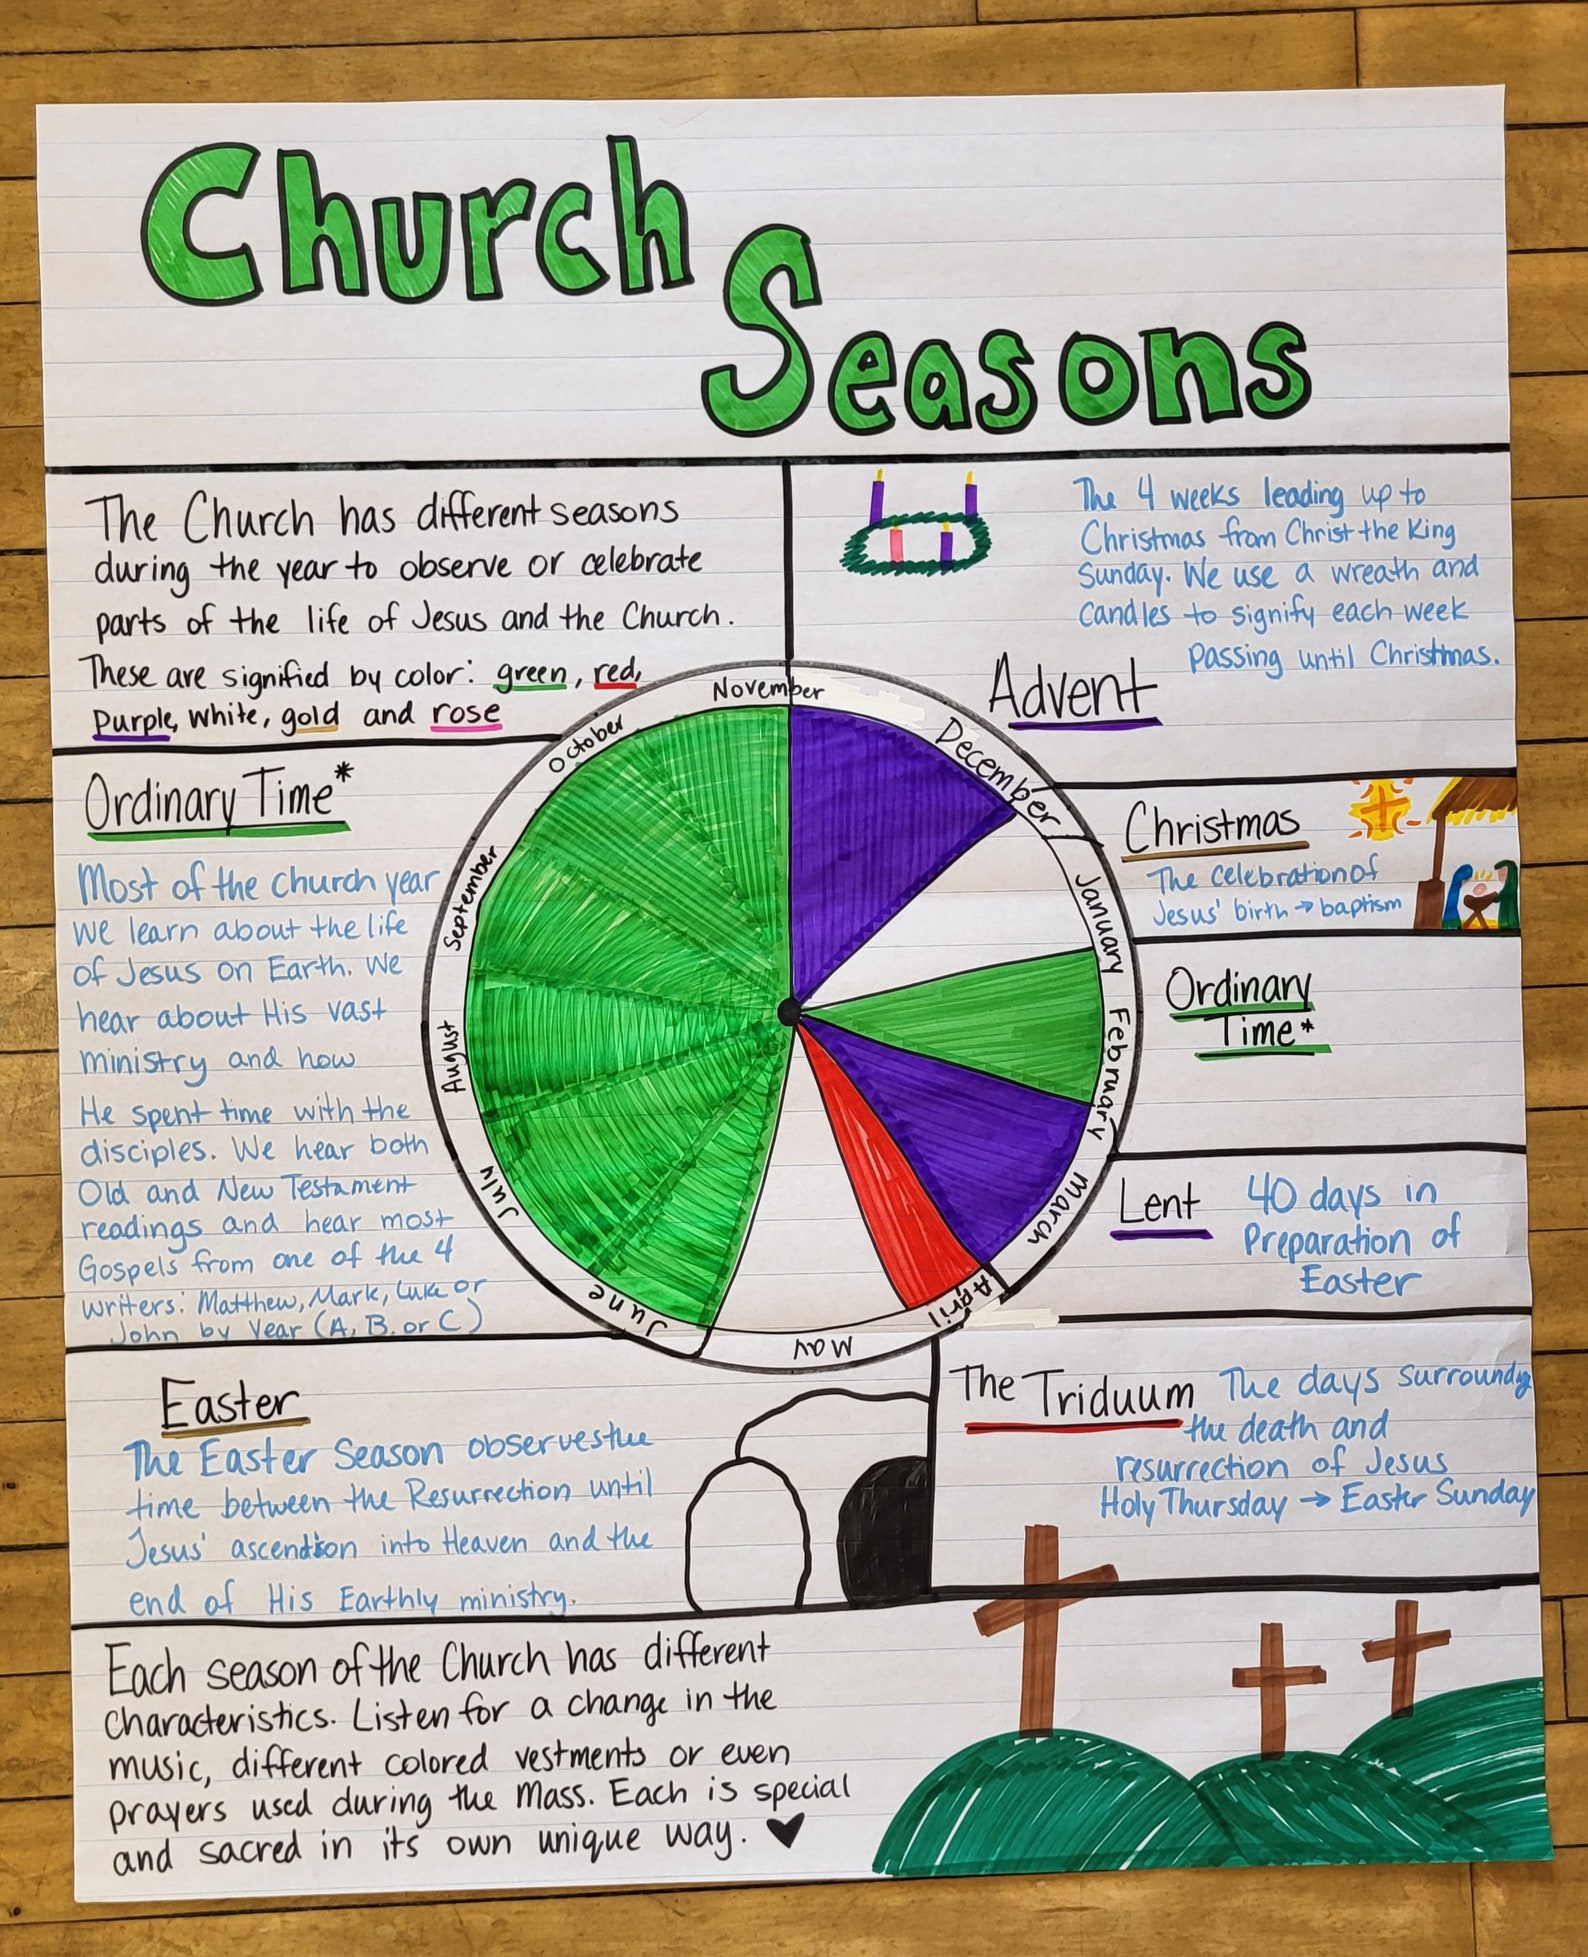 Church
Seasons
The Church has different seasons
during the year to observe or celebrate
parts of the life of Jesus and the Church.
These are signified by color: green, red,
purple, white, gold and rose
The 4 weeks leading up to
Christmas from Christ the King
Sunday. We use a wreath and
candles to signify each week
passing until Christmas.
Advent
November
December
January
February
March
April
May
June
July
August
September
October
Ordinary Time*
Most of the church year
we learn about the life
of Jesus on Earth. We
hear about His vast
ministry and how
He spent time with the
disciples. We hear both
Old and New Testament
readings and hear most
Gospels from one of the 4
writers: Matthew, Mark, Luke or
John by Year (A, B, or C)
Christmas
The celebration of
Jesus' birth → baptism
Ordinary
Time*
Lent
40 days in
Preparation of
Easter
Easter
The Easter Season observes the
time between the Resurrection until
Jesus' ascention into Heaven and the
end of His Earthly ministry.
The Triduum The days surroundg
the death and
resurrection of Jesus
Holy Thursday → Easter Sunday
Each season of the Church has different
characteristics. Listen for a change in the
music, different colored vestments or even
prayers used during the Mass. Each is special
and sacred in its own unique way. ♥